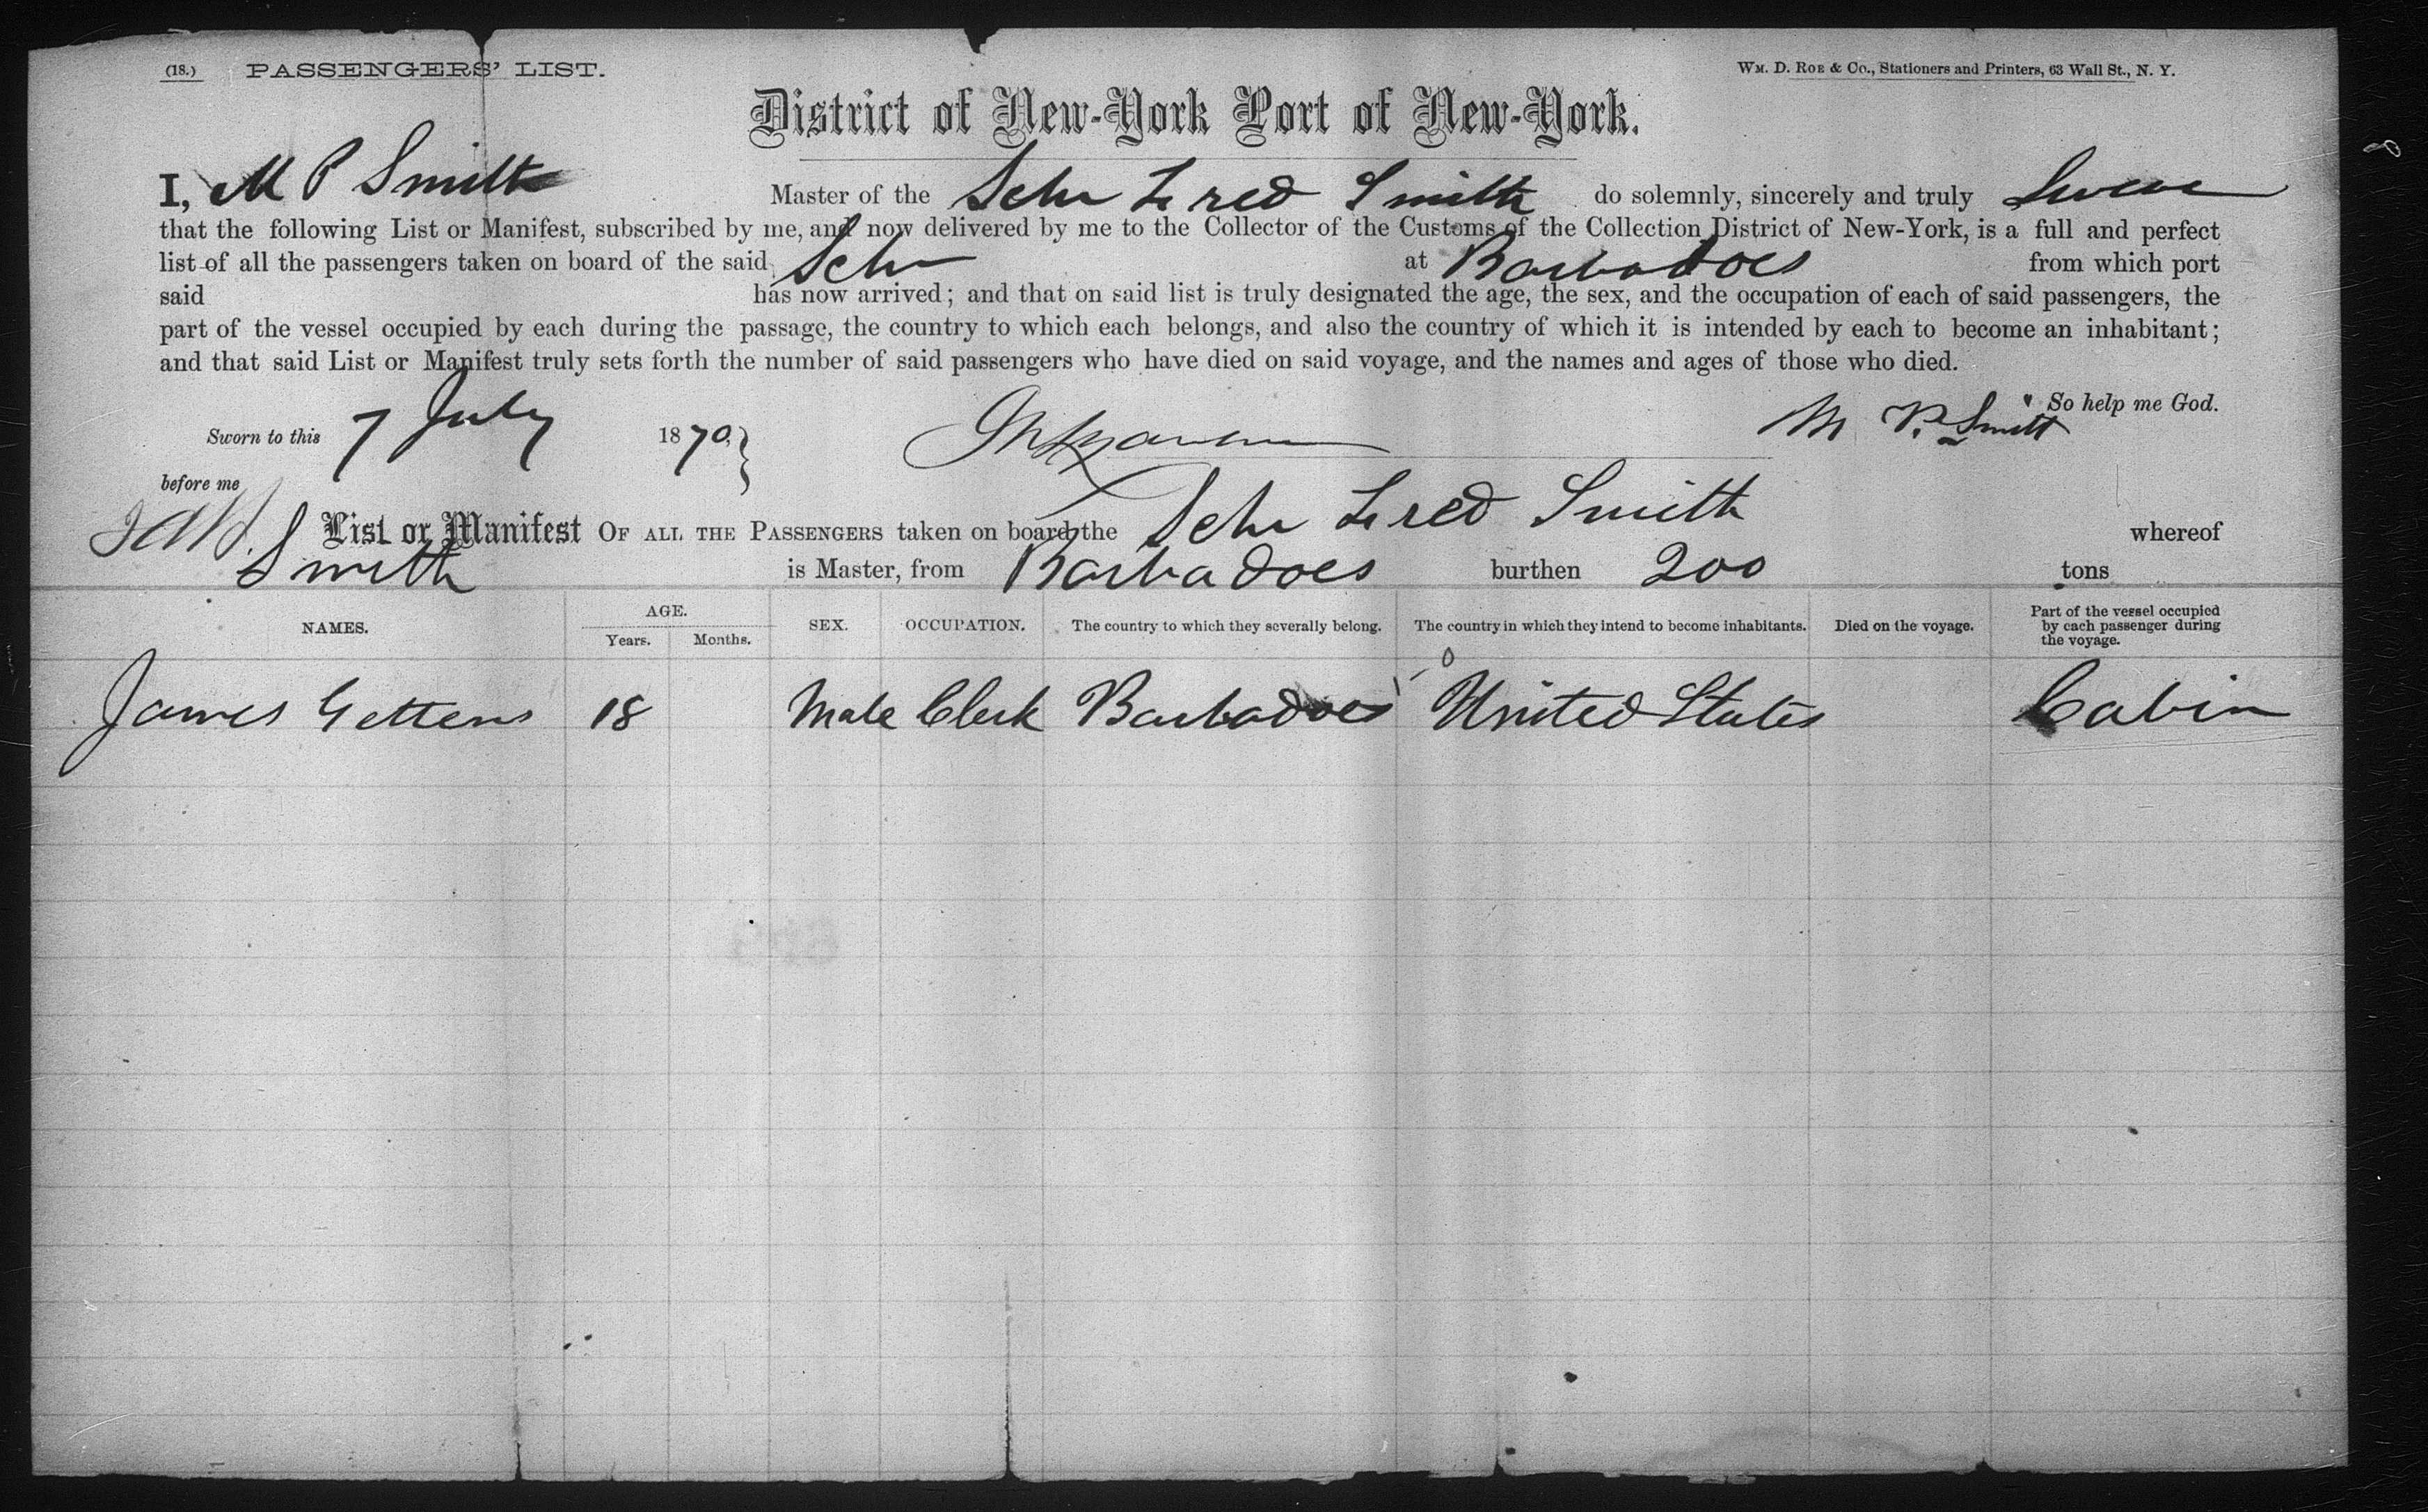 (18.) PASSENGERS' LIST. WM. D. ROE & CO., Stationers and Printers, 63 Wall St., N. Y.
District of New-York Port of New-York.
I, M P Smith Master of the Schr Fred Smith do solemnly, sincerely and truly Swear
that the following List or Manifest, subscribed by me, and now delivered by me to the Collector of the Customs of the Collection District of New-York, is a full and perfect
list of all the passengers taken on board of the said Schr at Barbadoes from which port
said has now arrived; and that on said list is truly designated the age, the sex, and the occupation of each of said passengers, the
part of the vessel occupied by each during the passage, the country to which each belongs, and also the country of which it is intended by each to become an inhabitant;
and that said List or Manifest truly sets forth the number of said passengers who have died on said voyage, and the names and ages of those who died.
So help me God.
Sworn to this 7 July 1870, M P. Smith
before me
List or Manifest OF ALL THE PASSENGERS taken on board the Schr Fred Smith whereof
Smith is Master, from Barbadoes burthen 200 tons
NAMES. AGE. Years. Months. SEX. OCCUPATION. The country to which they severally belong. The country in which they intend to become inhabitants. Died on the voyage. Part of the vessel occupied by each passenger during the voyage.
James Gettens 18 Male Clerk Barbadoes United States Cabin